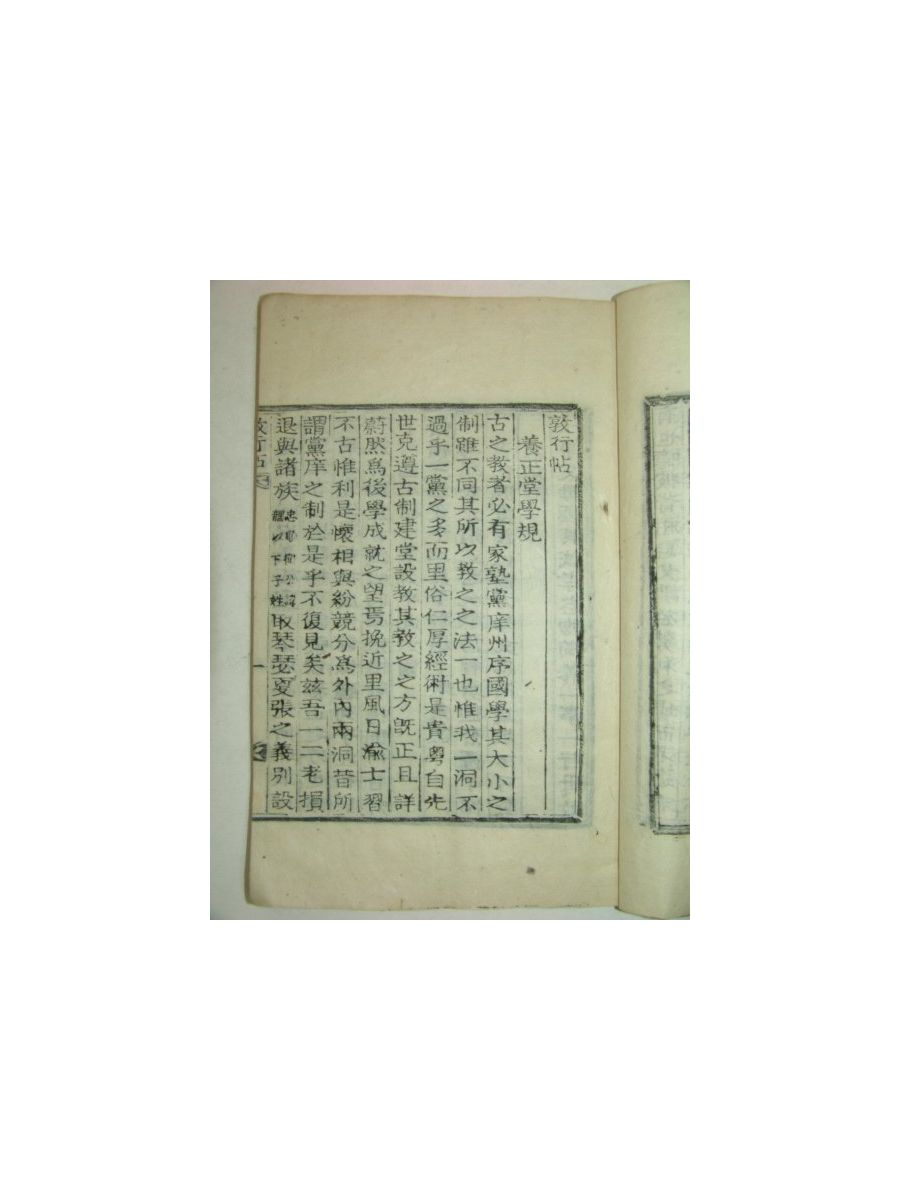 敦行帖
養正堂學規
古之教者必有家塾黨庠州序國學其大小之
制雖不同其所以教之之法一也惟我一洞不
過乎一黨之多而里俗仁厚經術是貴粤自先
世克遵古制建堂設教其教之之方旣正且詳
蔚然爲後學成就之望焉挽近里風日渝士習
不古惟利是懷相與紛競分爲外內兩洞昔所
謂黨庠之制於是乎不復見矣玆吾一二老損
退與諸族
以下子姓
取琴瑟更張之義別設
敦行帖
一